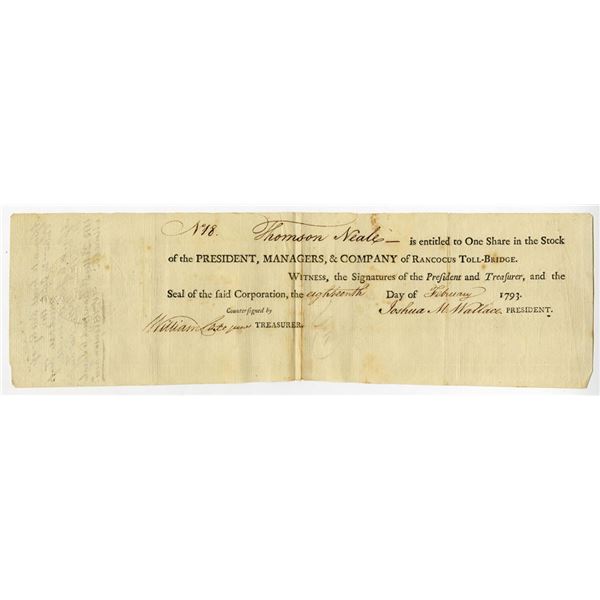 No. 18. Thomson Neale is entitled to One Share in the Stock
of the PRESIDENT, MANAGERS, & COMPANY of RANCOCUS TOLL-BRIDGE.
WITNESS, the Signatures of the President and Treasurer, and the
Seal of the said Corporation, the eighteenth Day of February 1793.
Countersigned by Joshua M. Wallace PRESIDENT.
William TREASURER.